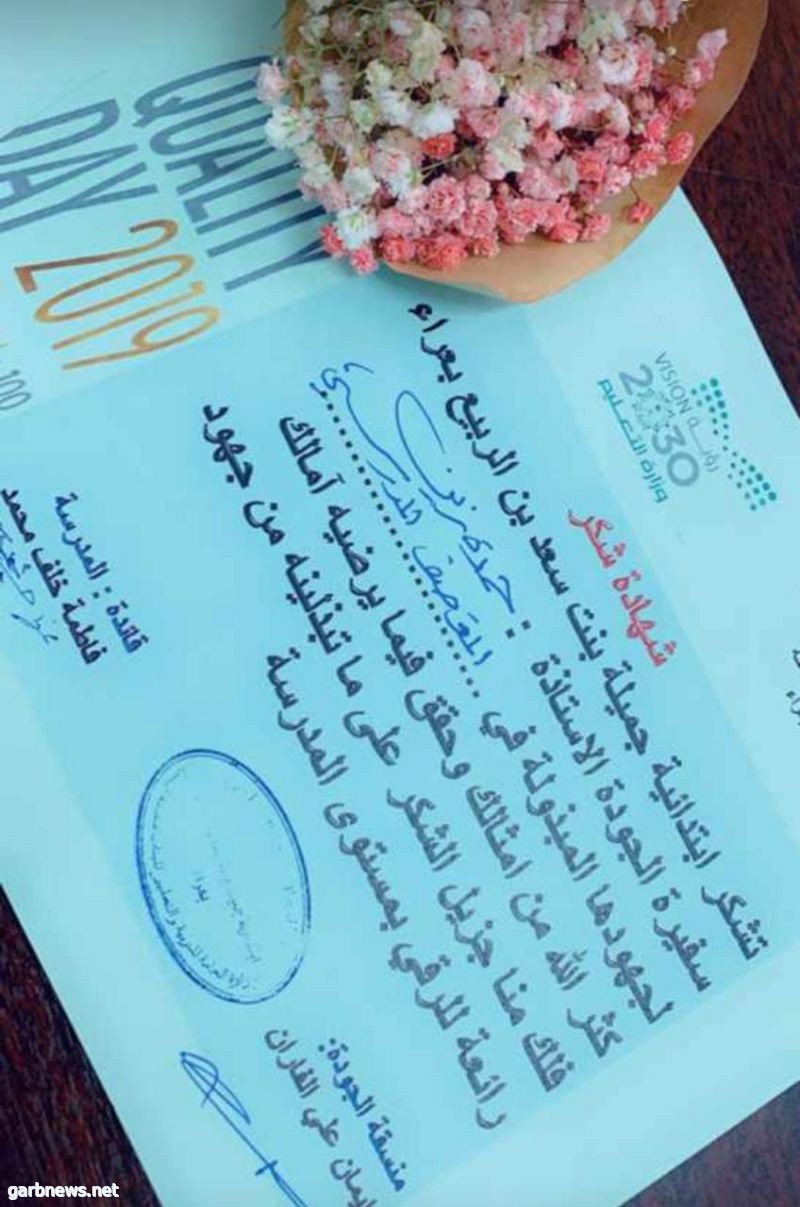 QUALITY
DAY 2019
100
VISION رؤيــة
2030
وزارة التعليم
شهادة شكر
تشكر ابتدائية جميلة بنت سعد بن الربيع بعراء
سفيرة الجودة الاستاذة :
لجهودها المبذولة في
كثر الله من امثالك وحقق فيما يرضيه آمالك
فلك منا جزيل الشكر على ما تبذلينه من جهود
رائعة للرقي بمستوى المدرسة
منسقة الجودة:
ايمان علي الفاران
قائدة : المدرسة
فاطمة خلف محمد
garbnews.net